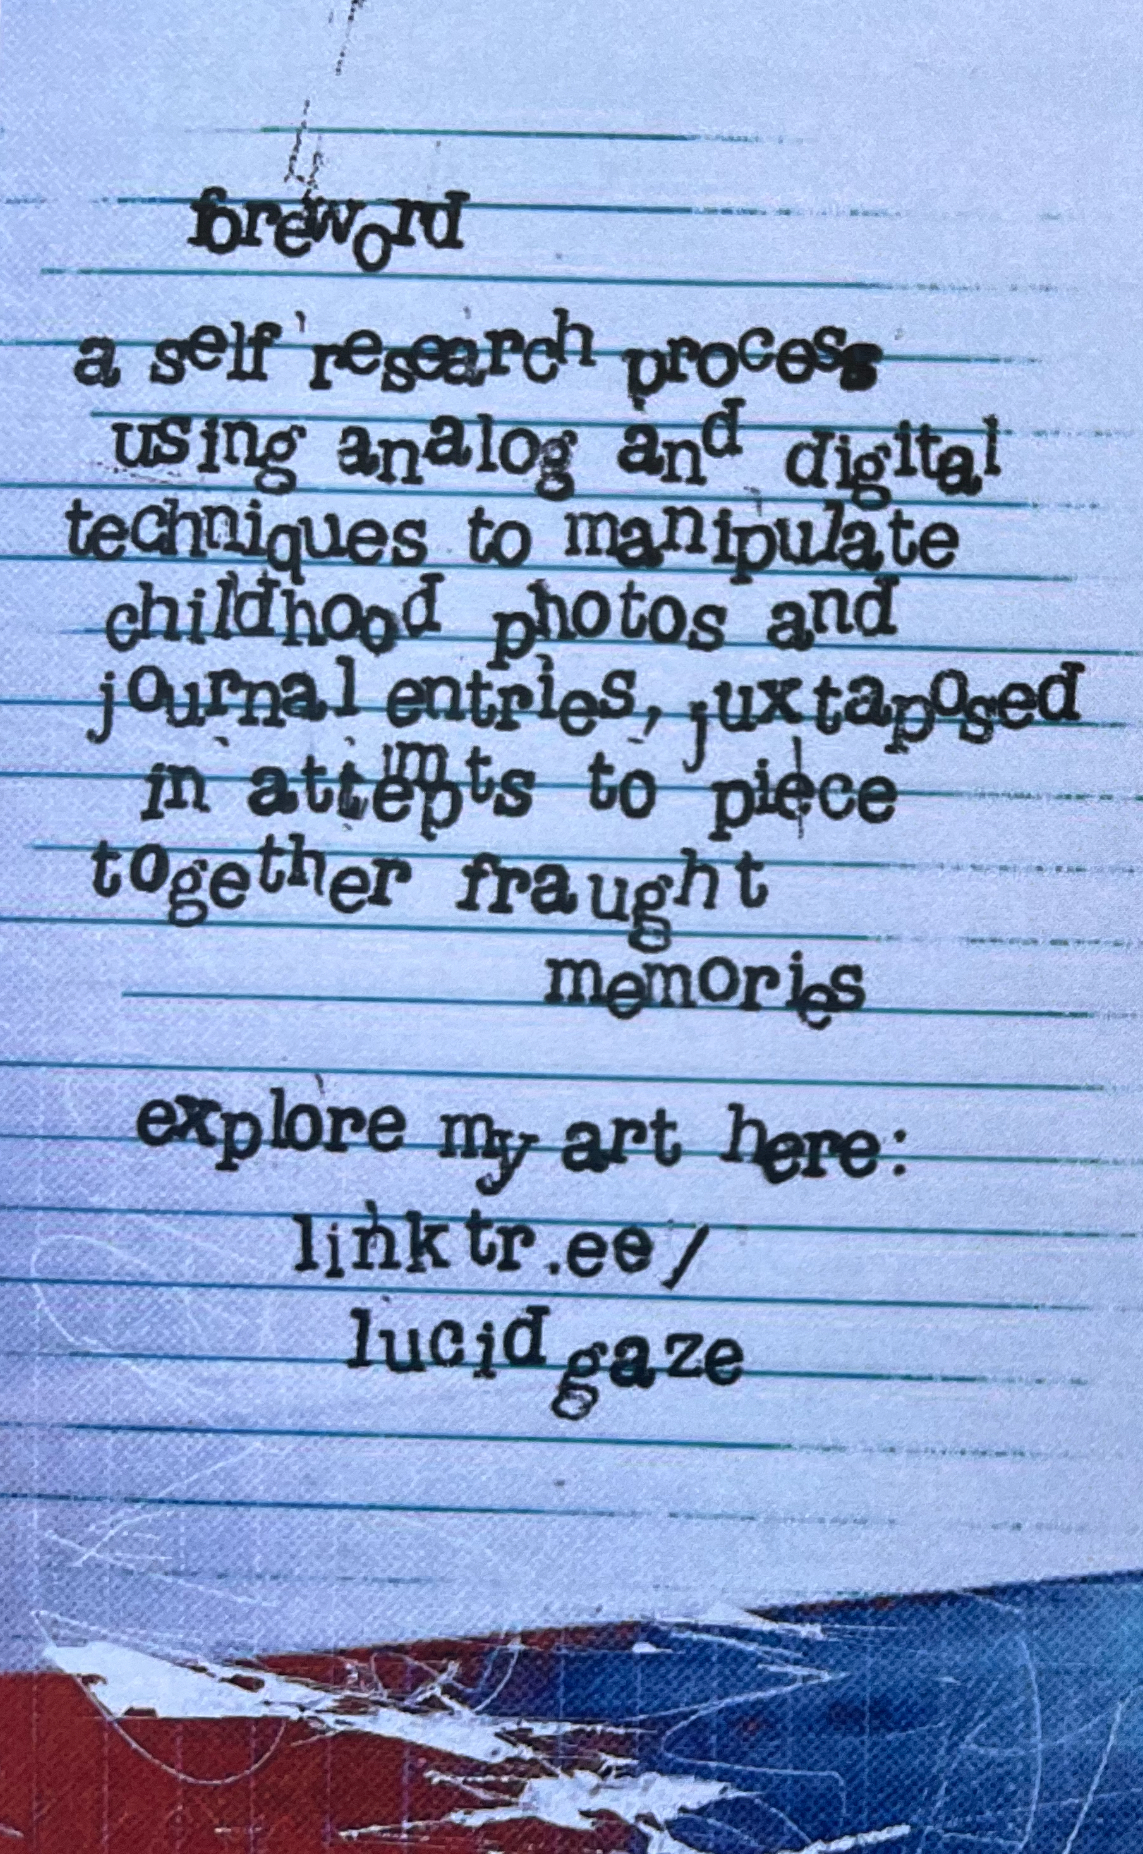 foreword
a self research process
using analog and digital
techniques to manipulate
childhood photos and
journal entries, juxtaposed
in attempts to piece
together fraught
memories
explore my art here:
linktr.ee/
lucidgaze